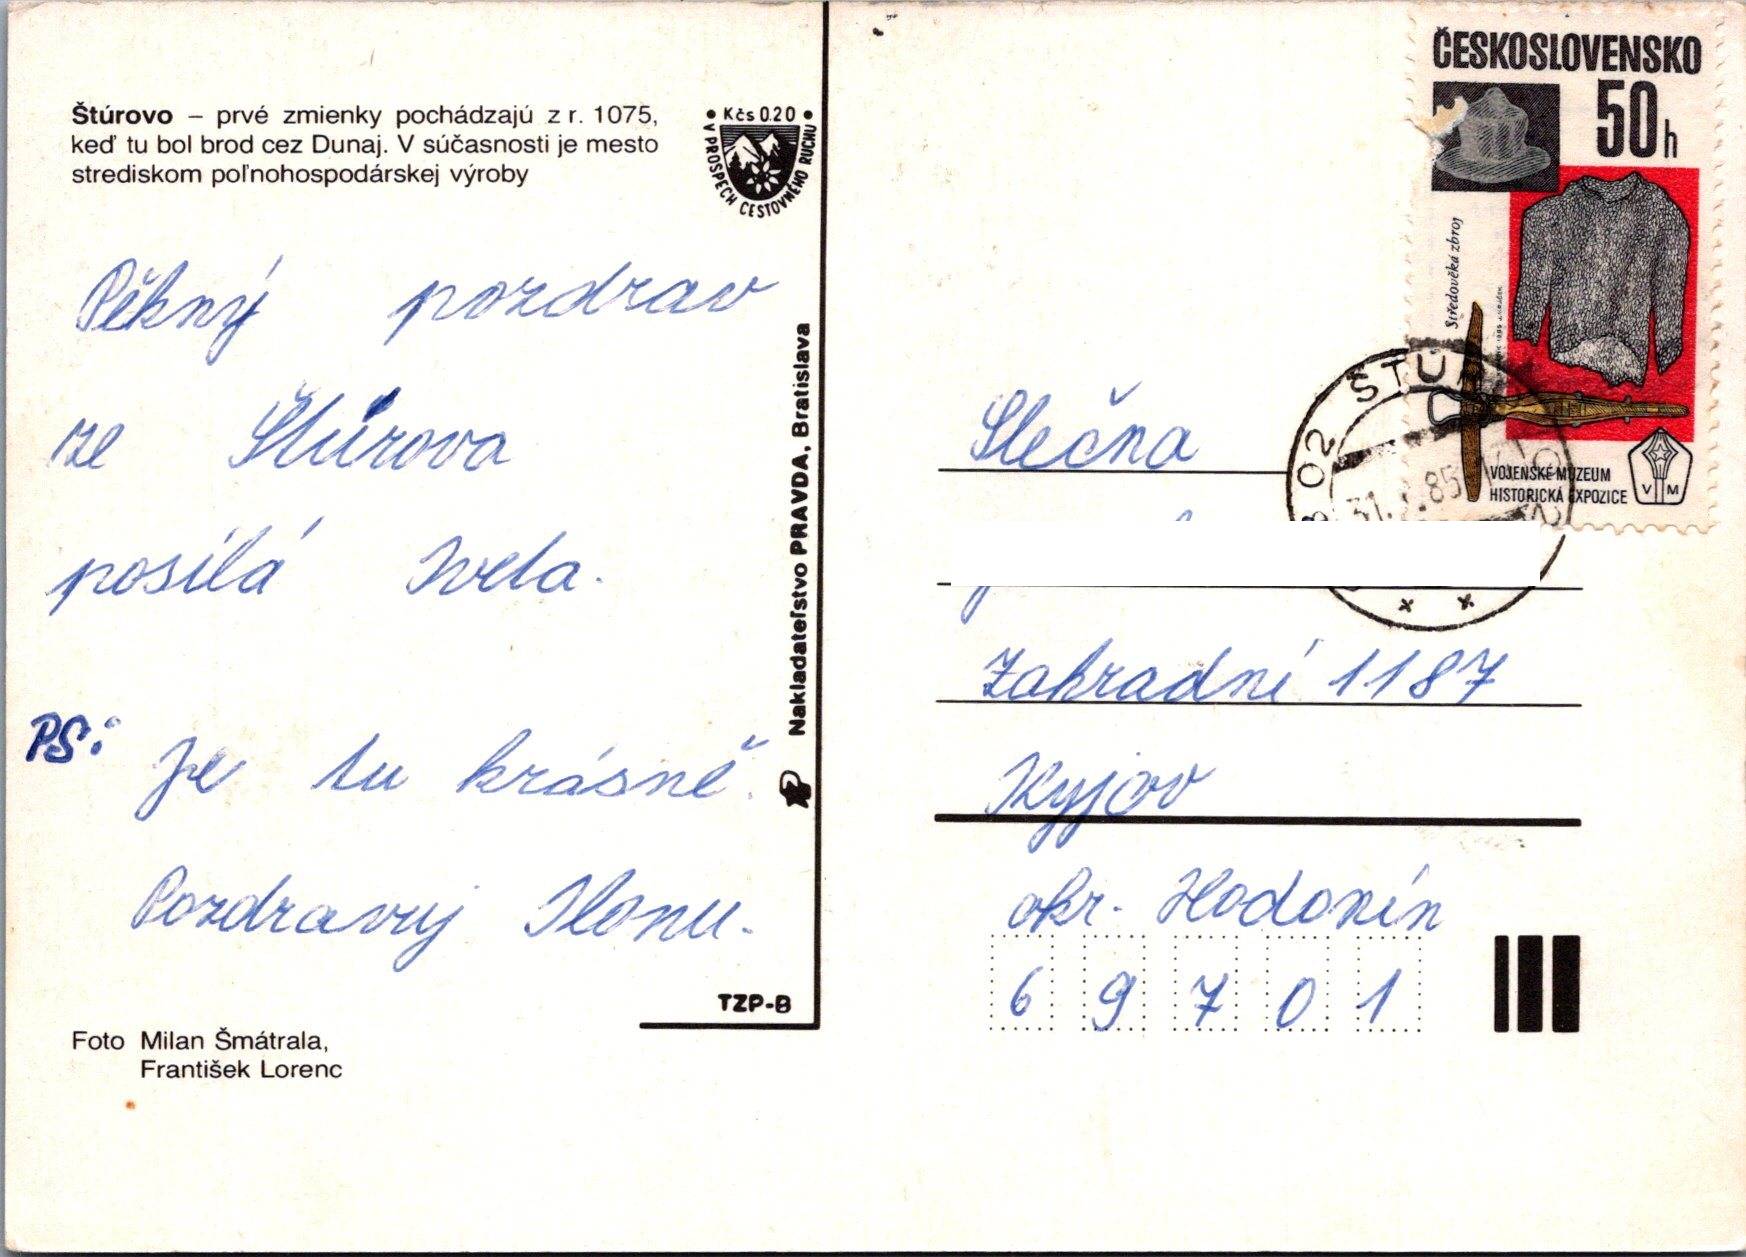 Štúrovo – prvé zmienky pochádzajú z r. 1075,
keď tu bol brod cez Dunaj. V súčasnosti je mesto
strediskom poľnohospodárskej výroby
Kčs 0.20
V PROSPECH CESTOVNÉHO RUCHU
Pěkný pozdrav
ze Štúrova
posílá Iveta.
PS: Je tu krásně.
Pozdravuj Ilonu.
TZP-B
Foto Milan Šmátrala,
František Lorenc
Nakladateľstvo PRAVDA, Bratislava
ČESKOSLOVENSKO
50 h
Středověká zbroj
VOJENSKÉ MUZEUM
HISTORICKÁ EXPOZICE
V M
02 ŠTÚR
31. 85
Slečna
Zahradní 1187
Kyjov
okr. Hodonín
69701